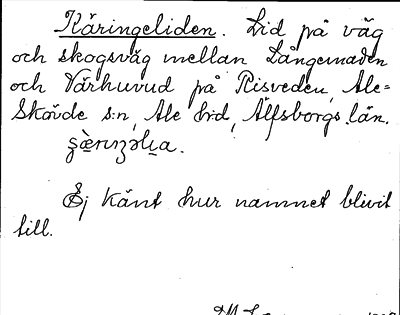 Käringeliden. Lid på väg
och skogsväg mellan Långemaden
och Värhuvud på Risveden, Ale=
Skövde s:n, Ale h:d, Älfsborgs län.
Ej känt hur namnet blivit
till.